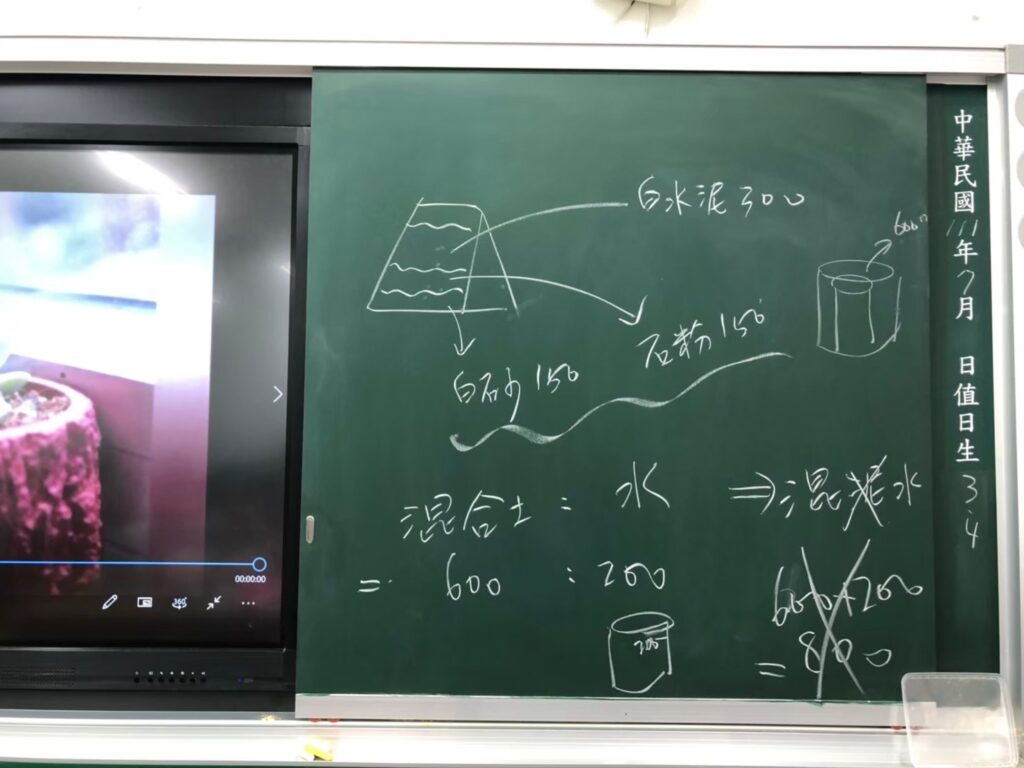 白水泥300
600
石粉150
白石砂150
混合土 : 水 ⇒混泥水
= 600 : 200
600+200
= 800
200
00:00:00
中華民國111年9月 日值日生
3.4